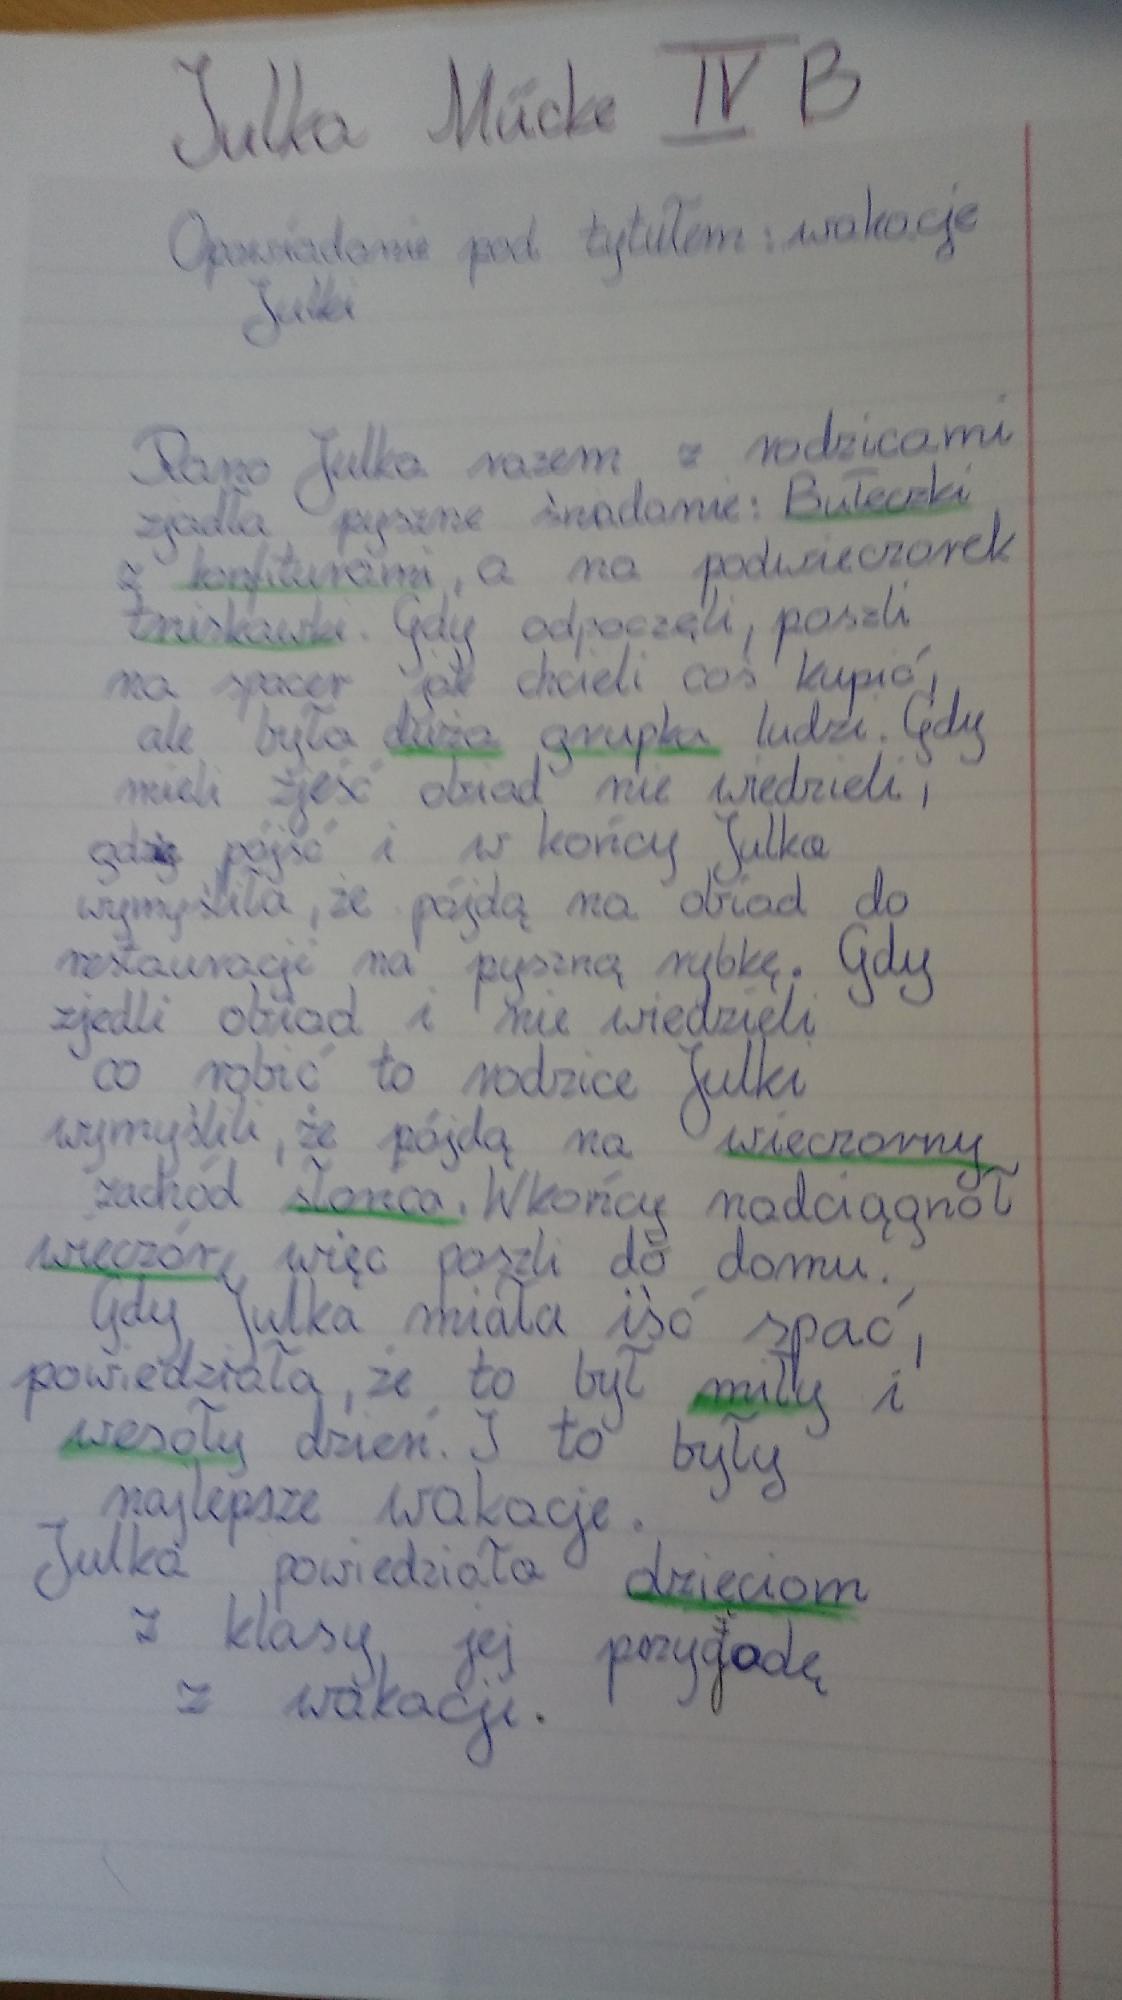 Julka Mücke IV B
Opowiadanie pod tytułem: wakacje
Julki
Rano Julka razem z rodzicami
zjadła pyszne śniadanie: Bułeczki
z konfiturami, a na podwieczorek
truskawki. Gdy odpoczęli, poszli
na spacer jak chcieli coś kupić,
ale była duża grupka ludzi. Gdy
mieli zjeść obiad nie wiedzieli,
gdzie pójść i w końcy Julka
wymyśliła, że pójdą na obiad do
restauracji na pyszną rybkę. Gdy
zjedli obiad i nie wiedzieli
co robić to rodzice Julki
wymyślili, że pójdą na wieczorny
zachód słońca. Wkońcy nadciągnoł
wieczór, więc poszli do domu.
Gdy Julka miała iść spać,
powiedziała, że to był miły i
wesoły dzień. I to były
najlepsze wakacje.
Julka powiedziała dzieciom
z klasy jej przygodę
z wakacji.